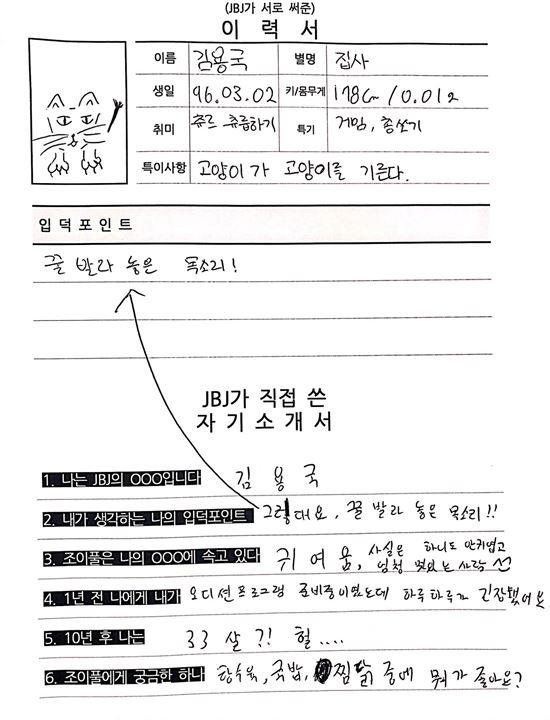 (JBJ가 서로 써준)
이 력 서
이름 김용국 별명 집사
생일 96.03.02 키/몸무게 178cm / 0.012
취미 츄르 츄릅하기 특기 게임, 총쏘기
특이사항 고양이가 고양이를 기른다.
입 덕 포 인 트
꿀 발라 놓은 목소리!
JBJ가 직접 쓴
자 기 소 개 서
1. 나는 JBJ의 OOO입니다 김 용 국
2. 내가 생각하는 나의 입덕포인트 그렇대요, 꿀 발라 놓은 목소리!!
3. 조이풀은 나의 OOO에 속고 있다 귀 여 움, 사실은 하나도 안귀엽고
엄청 멋있는 사람
4. 1년 전 나에게 내가 오디션프로그램 준비중이였는데 하루하루가 긴장됐어요
5. 10년 후 나는 33 살?! 헐....
6. 조이풀에게 궁금한 하나 탕수육, 국밥, 찜닭 중에 뭐가 좋아요?